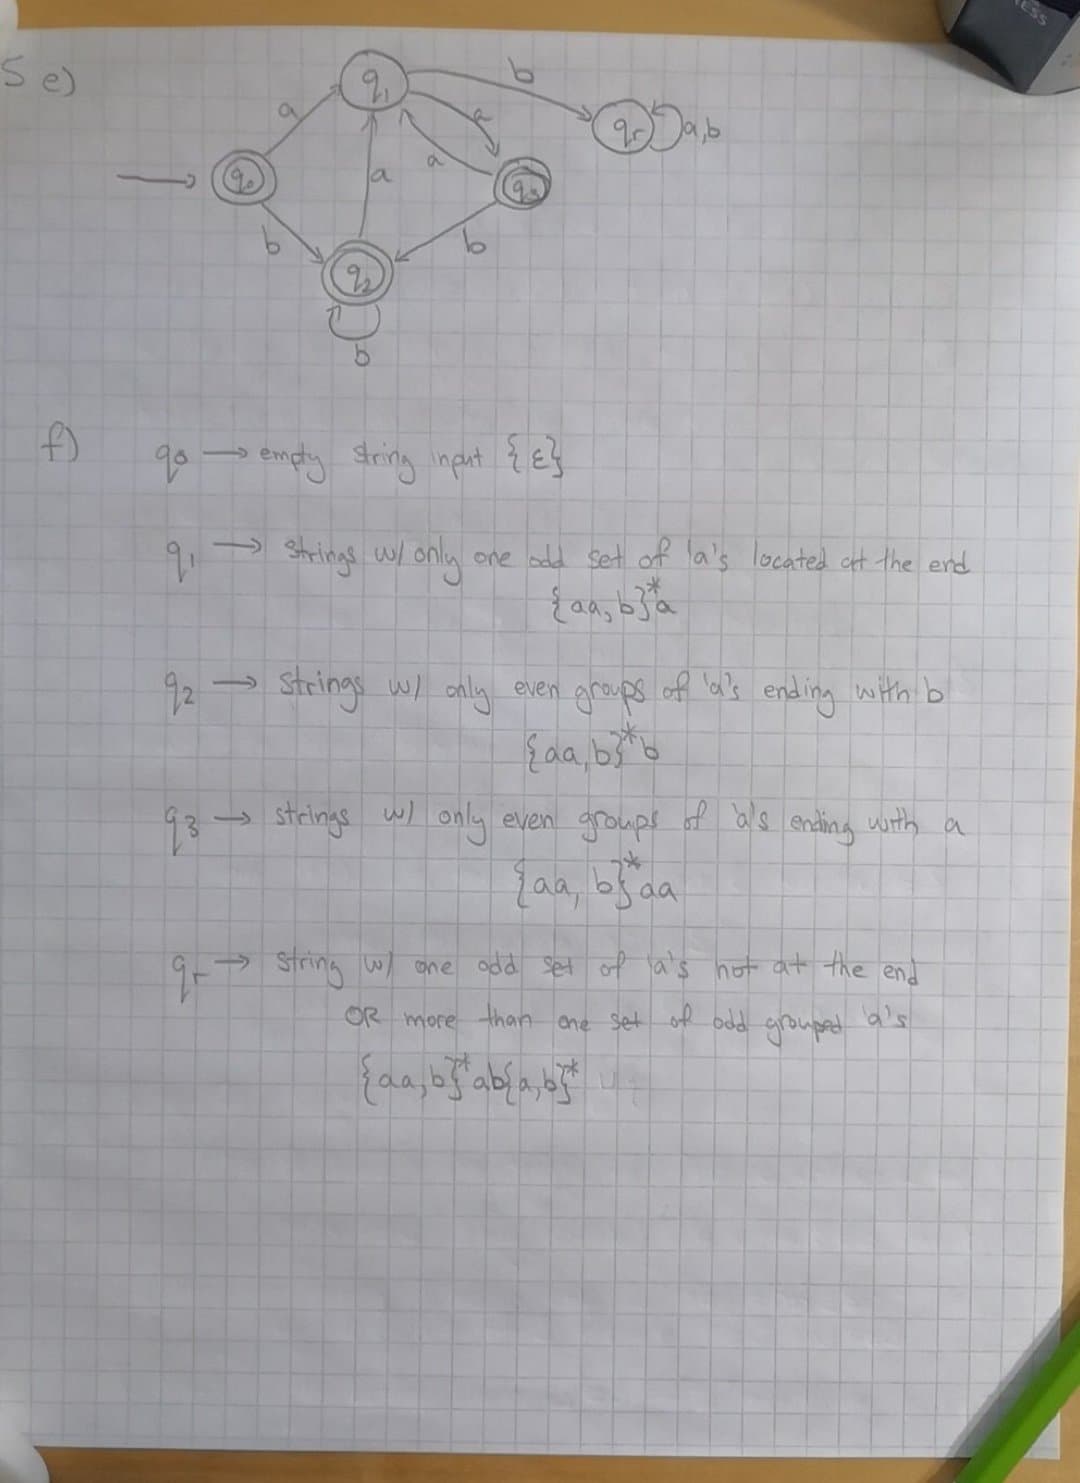 5 e)
q₁
b
a
a
qᵣ
a,b
q₀
a
a
q₃
b
b
q₂
b
f)
q₀ → empty string input {ε}
q₁ → strings w/ only one odd set of 'a's located at the end
{aa, b}*a
q₂ → strings w/ only even groups of 'a's ending with b
{aa, b}*b
q₃ → strings w/ only even groups of 'a's ending with a
{aa, b}*aa
qᵣ → string w/ one odd set of 'a's not at the end
OR more than one set of odd grouped 'a's
{aa, b}*ab{a,b}*